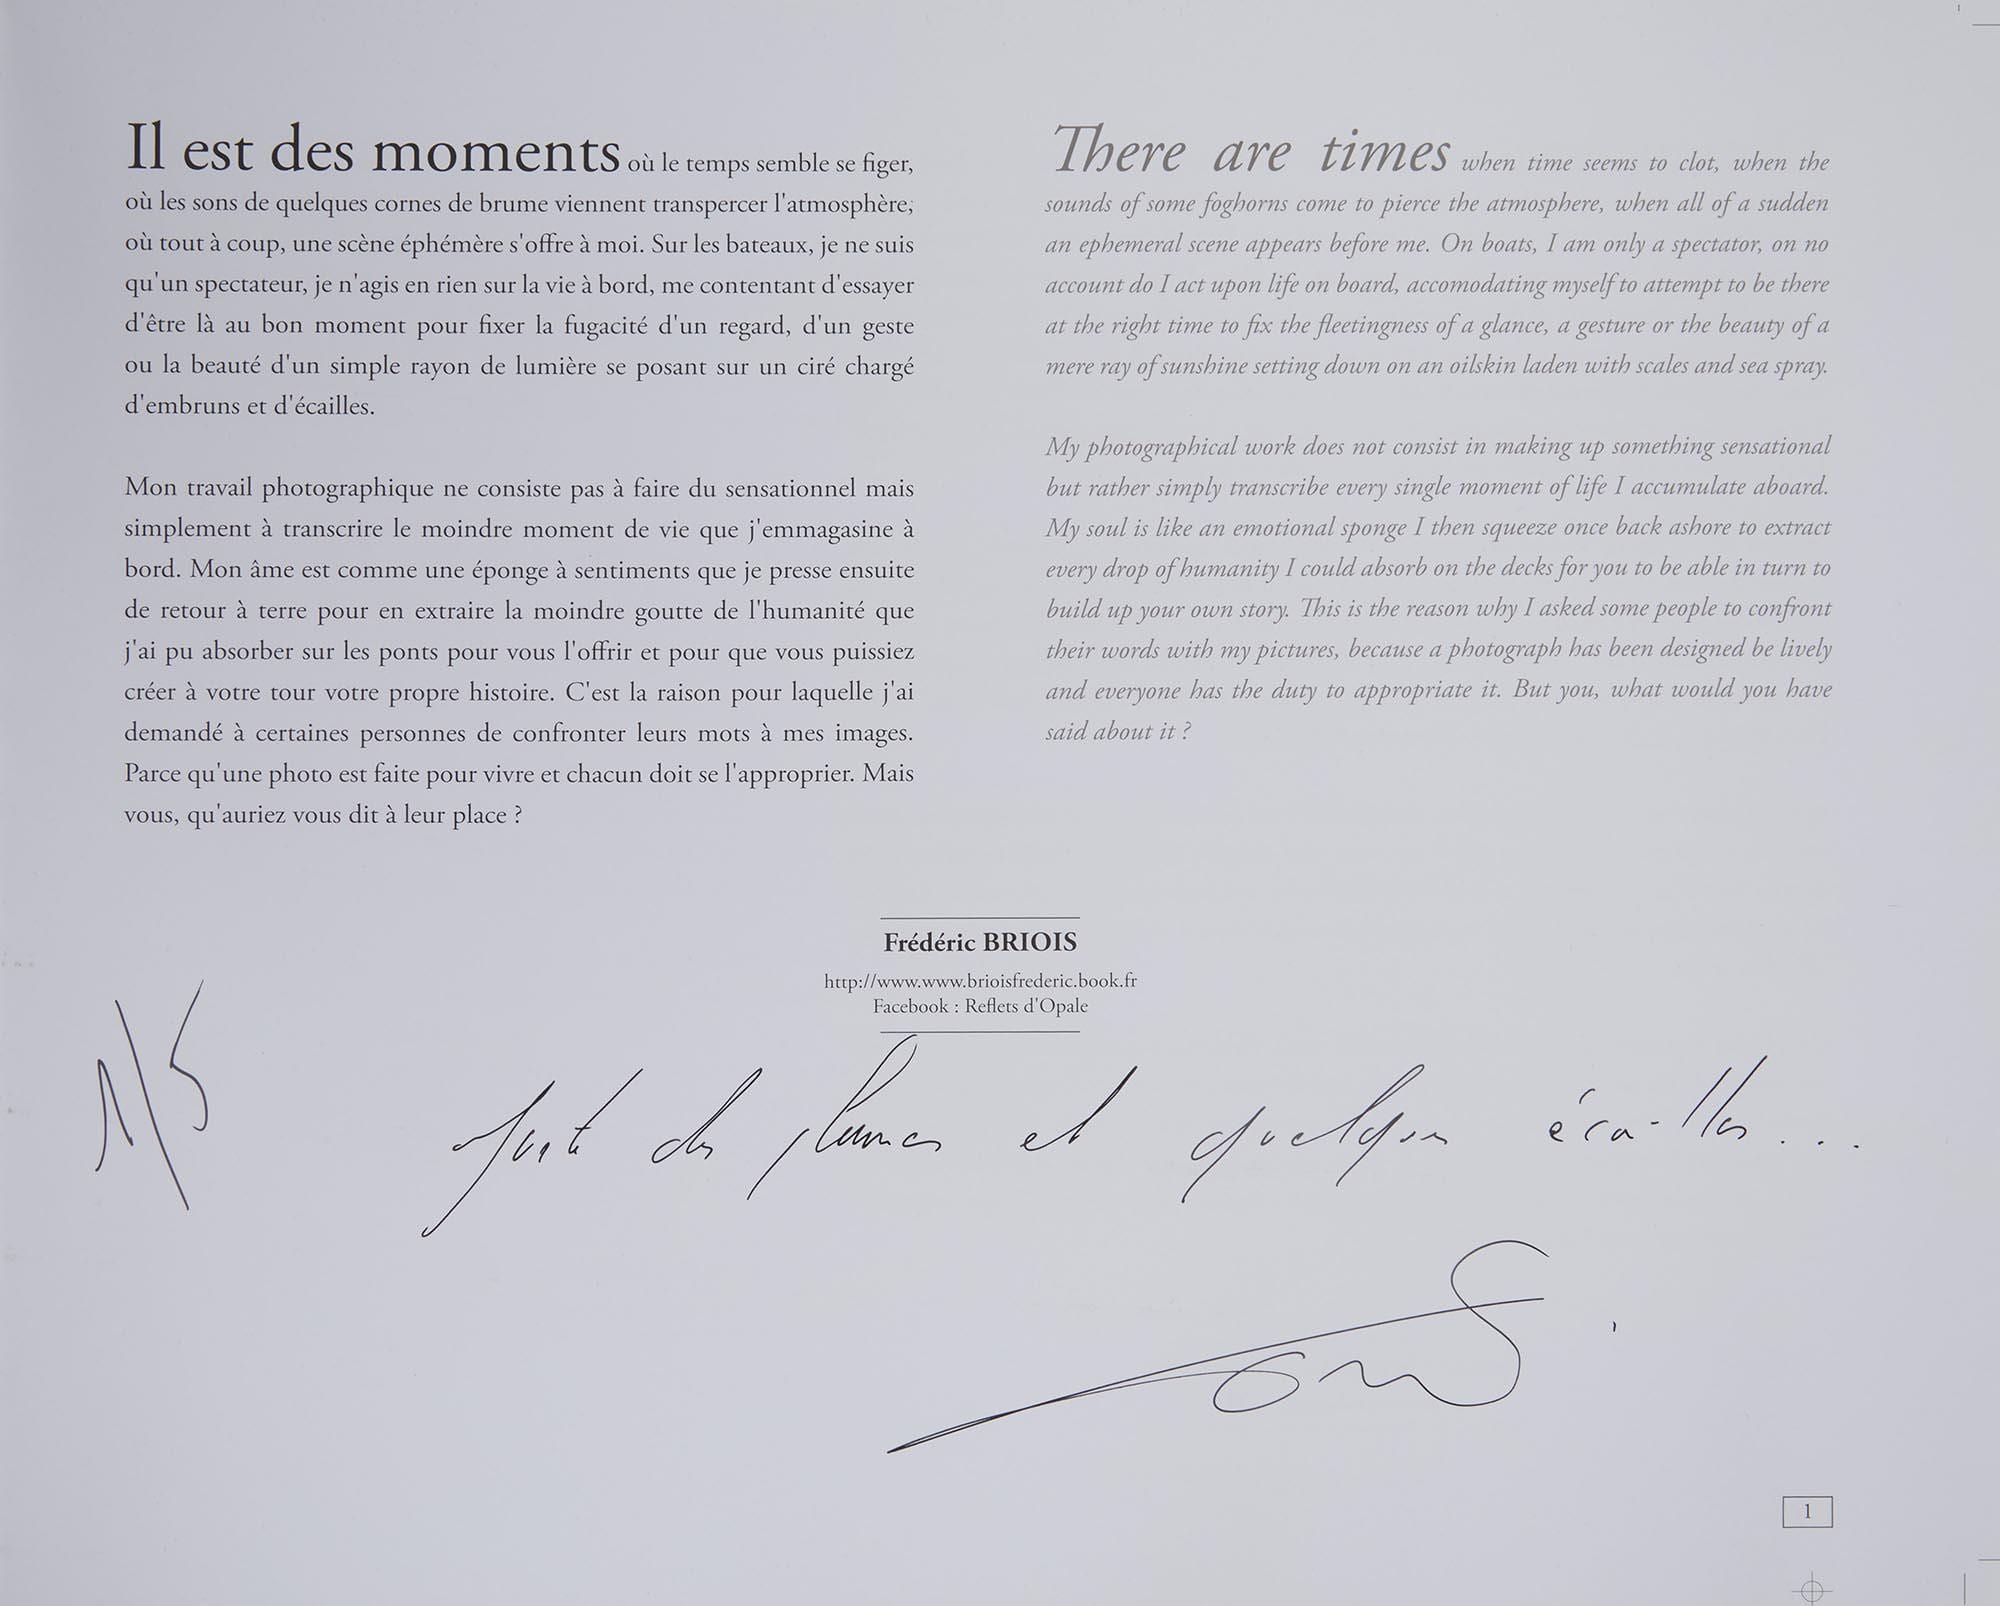 Il est des moments où le temps semble se figer,
où les sons de quelques cornes de brume viennent transpercer l'atmosphère,
où tout à coup, une scène éphémère s'offre à moi. Sur les bateaux, je ne suis
qu'un spectateur, je n'agis en rien sur la vie à bord, me contentant d'essayer
d'être là au bon moment pour fixer la fugacité d'un regard, d'un geste
ou la beauté d'un simple rayon de lumière se posant sur un ciré chargé
d'embruns et d'écailles.
Mon travail photographique ne consiste pas à faire du sensationnel mais
simplement à transcrire le moindre moment de vie que j'emmagasine à
bord. Mon âme est comme une éponge à sentiments que je presse ensuite
de retour à terre pour en extraire la moindre goutte de l'humanité que
j'ai pu absorber sur les ponts pour vous l'offrir et pour que vous puissiez
créer à votre tour votre propre histoire. C'est la raison pour laquelle j'ai
demandé à certaines personnes de confronter leurs mots à mes images.
Parce qu'une photo est faite pour vivre et chacun doit se l'approprier. Mais
vous, qu'auriez vous dit à leur place ?
There are times when time seems to clot, when the
sounds of some foghorns come to pierce the atmosphere, when all of a sudden
an ephemeral scene appears before me. On boats, I am only a spectator, on no
account do I act upon life on board, accomodating myself to attempt to be there
at the right time to fix the fleetingness of a glance, a gesture or the beauty of a
mere ray of sunshine setting down on an oilskin laden with scales and sea spray.
My photographical work does not consist in making up something sensational
but rather simply transcribe every single moment of life I accumulate aboard.
My soul is like an emotional sponge I then squeeze once back ashore to extract
every drop of humanity I could absorb on the decks for you to be able in turn to
build up your own story. This is the reason why I asked some people to confront
their words with my pictures, because a photograph has been designed be lively
and everyone has the duty to appropriate it. But you, what would you have
said about it ?
Frédéric BRIOIS
http://www.www.brioisfrederic.book.fr
Facebook : Reflets d'Opale
1/5
Juste des plumes et quelques écailles...
1